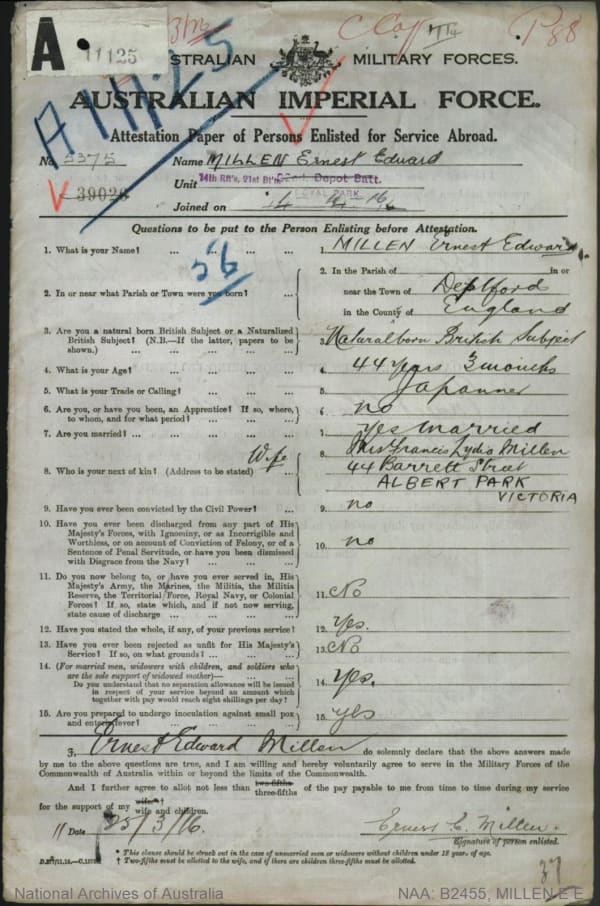 A 11125
AUSTRALIAN MILITARY FORCES.
AUSTRALIAN IMPERIAL FORCE.
A11125
Attestation Paper of Persons Enlisted for Service Abroad.
No. 5375 Name MILLEN Ernest Edward
39026 Unit 14th Rft's, 21st Bt'n. Depot Batt.
ROYAL PARK
Joined on
Questions to be put to the Person Enlisting before Attestation.
1. What is your Name? ... ... ... ... 1. MILLEN Ernest Edward
56
2. In or near what Parish or Town were you born? ... 2. In the Parish of in or
near the Town of Deptford
in the County of England
3. Are you a natural born British Subject or a Naturalized
British Subject? (N.B.—If the latter, papers to be
shown.) ... ... ... ... 3. Natural born British Subject
4. What is your Age? ... ... ... ... 4. 44 years 3 months
5. What is your Trade or Calling? ... ... ... 5. Japanner
6. Are you, or have you been, an Apprentice? If so, where,
to whom, and for what period? ... ... ... 6. no
7. Are you married? ... ... ... ... 7. yes married
8. Who is your next of kin? (Address to be stated) ... Wife 8. Mrs Francis Lydia Millen
44 Barrett Street
ALBERT PARK
VICTORIA
9. Have you ever been convicted by the Civil Power? ... 9. no
10. Have you ever been discharged from any part of His
Majesty's Forces, with Ignominy, or as Incorrigible and
Worthless, or on account of Conviction of Felony, or of a
Sentence of Penal Servitude, or have you been dismissed
with Disgrace from the Navy? ... ... ... 10. no
11. Do you now belong to, or have you ever served in, His
Majesty's Army, the Marines, the Militia, the Militia
Reserve, the Territorial Force, Royal Navy, or Colonial
Forces? If so, state which, and if not now serving,
state cause of discharge ... ... ... 11. No
12. Have you stated the whole, if any, of your previous service? 12. Yes.
13. Have you ever been rejected as unfit for His Majesty's
Service? If so, on what grounds? ... ... 13. No
14. (For married men, widowers with children, and soldiers who
are the sole support of widowed mother)—
Do you understand that no separation allowance will be issued
in respect of your service beyond an amount which
together with pay would reach eight shillings per day? 14. Yes.
15. Are you prepared to undergo inoculation against small pox
and enteric fever? ... ... ... ... 15. yes
I, Ernest Edward Millen do solemnly declare that the above answers made
by me to the above questions are true, and I am willing and hereby voluntarily agree to serve in the Military Forces of the
Commonwealth of Australia within or beyond the limits of the Commonwealth.
And I further agree to allot not less than two-fifths three-fifths of the pay payable to me from time to time during my service
for the support of my wife† wife and children.
Date 25/3/16. Ernest E. Millen.
Signature of person enlisted.
* This clause should be struck out in the case of unmarried men or widowers without children under 18 years of age.
† Two-fifths must be allotted to the wife, and if there are children three-fifths must be allotted.
37
National Archives of Australia NAA: B2455, MILLEN E E